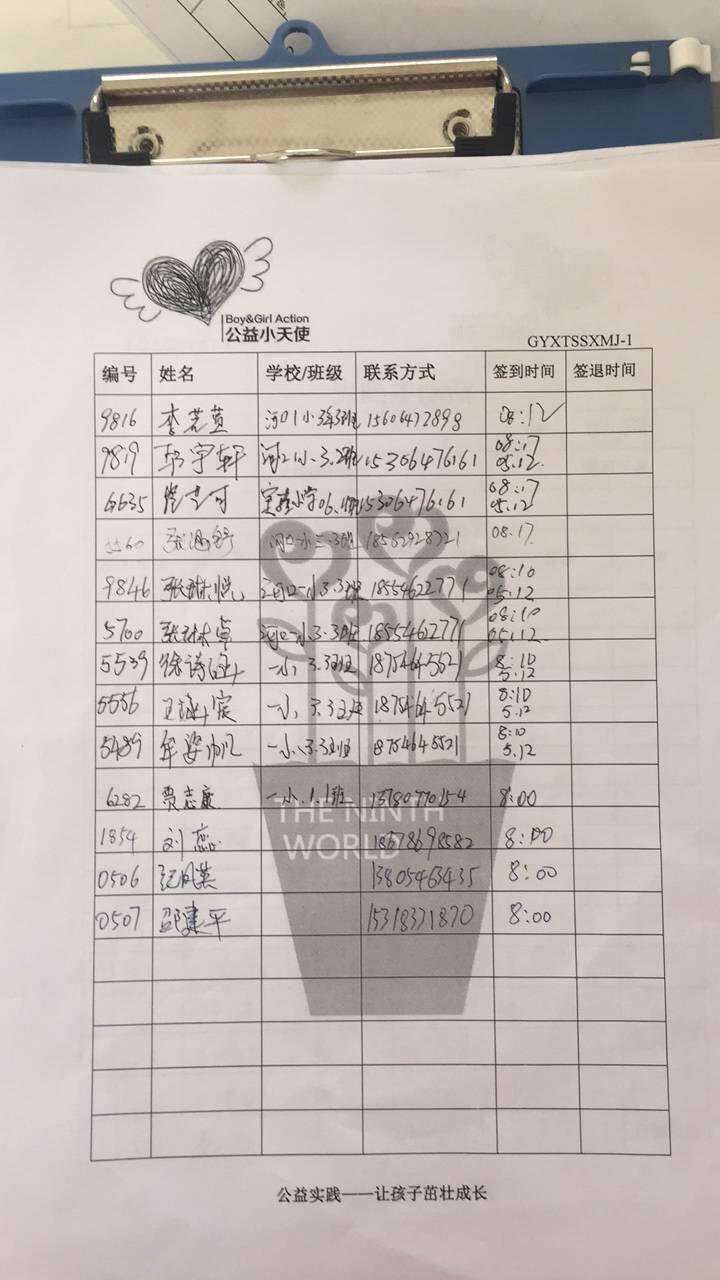 Boy&Girl Action
公益小天使
GYXTSSXMJ-1
编号 姓名 学校/班级 联系方式 签到时间 签退时间
9816 李若萱 河口1小3.3班 15606472898 08:12
9819 宇轩 河口一小.3.2班 15306476161 08:17 05.12.
6635 可 实验小学 15306476161 08:17 05.12
张 河口一小三.3班 08.17
9846 张琳悦 河口一小3.3班 18554622771 08:10 05.12
5700 张琳卓 河口一小3.3班 18554622771 08:10 05.12
5539 徐诗 一小, 3.3班 18754645521 8:10 5.12
5556 王 宸 一小, 3.3班 18754645521 8:10 5.12
5489 牟姿帆 一小.3.3班 18754645521 8:10 5.12
6282 贾志康 一小.1.1班 13780770154 8:00
1854 刘蕊 18678698582 8:00
0506 纪风英 13805463435 8:00
0507 邵建平 15318371870 8:00
THE NINTH
WORLD
公益实践——让孩子茁壮成长